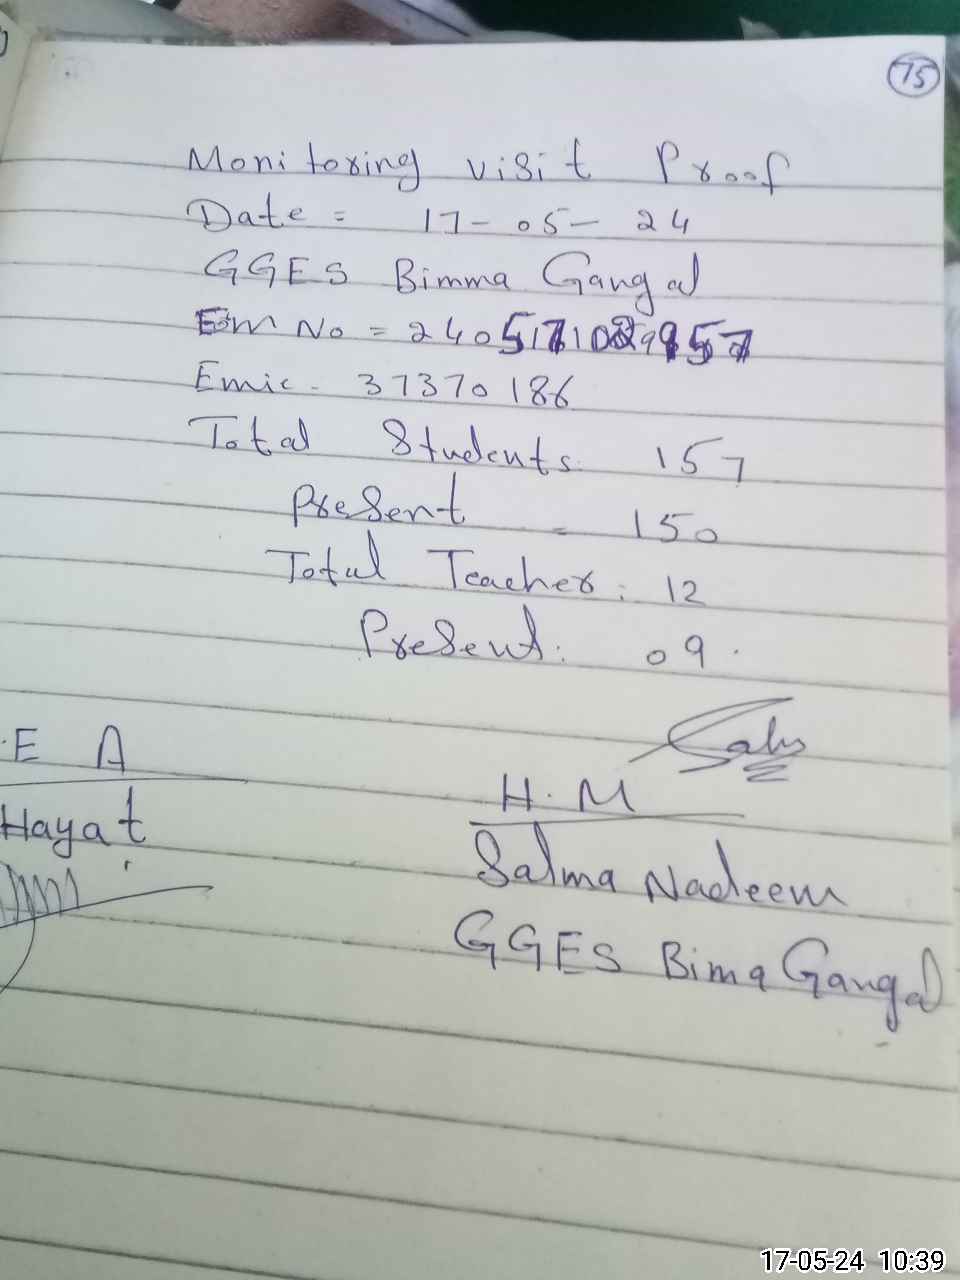 75
Monitoring visit Proof
Date = 17-05-24
GGES Bimma Gangal
No =
Emic - 37370186
Total Students. 157
Present = 150
Total Teacher: 12
Present: 09.
E A
Hayat
H.M
Salma Nadeem
GGES Bima Gangal
17-05-24 10:39